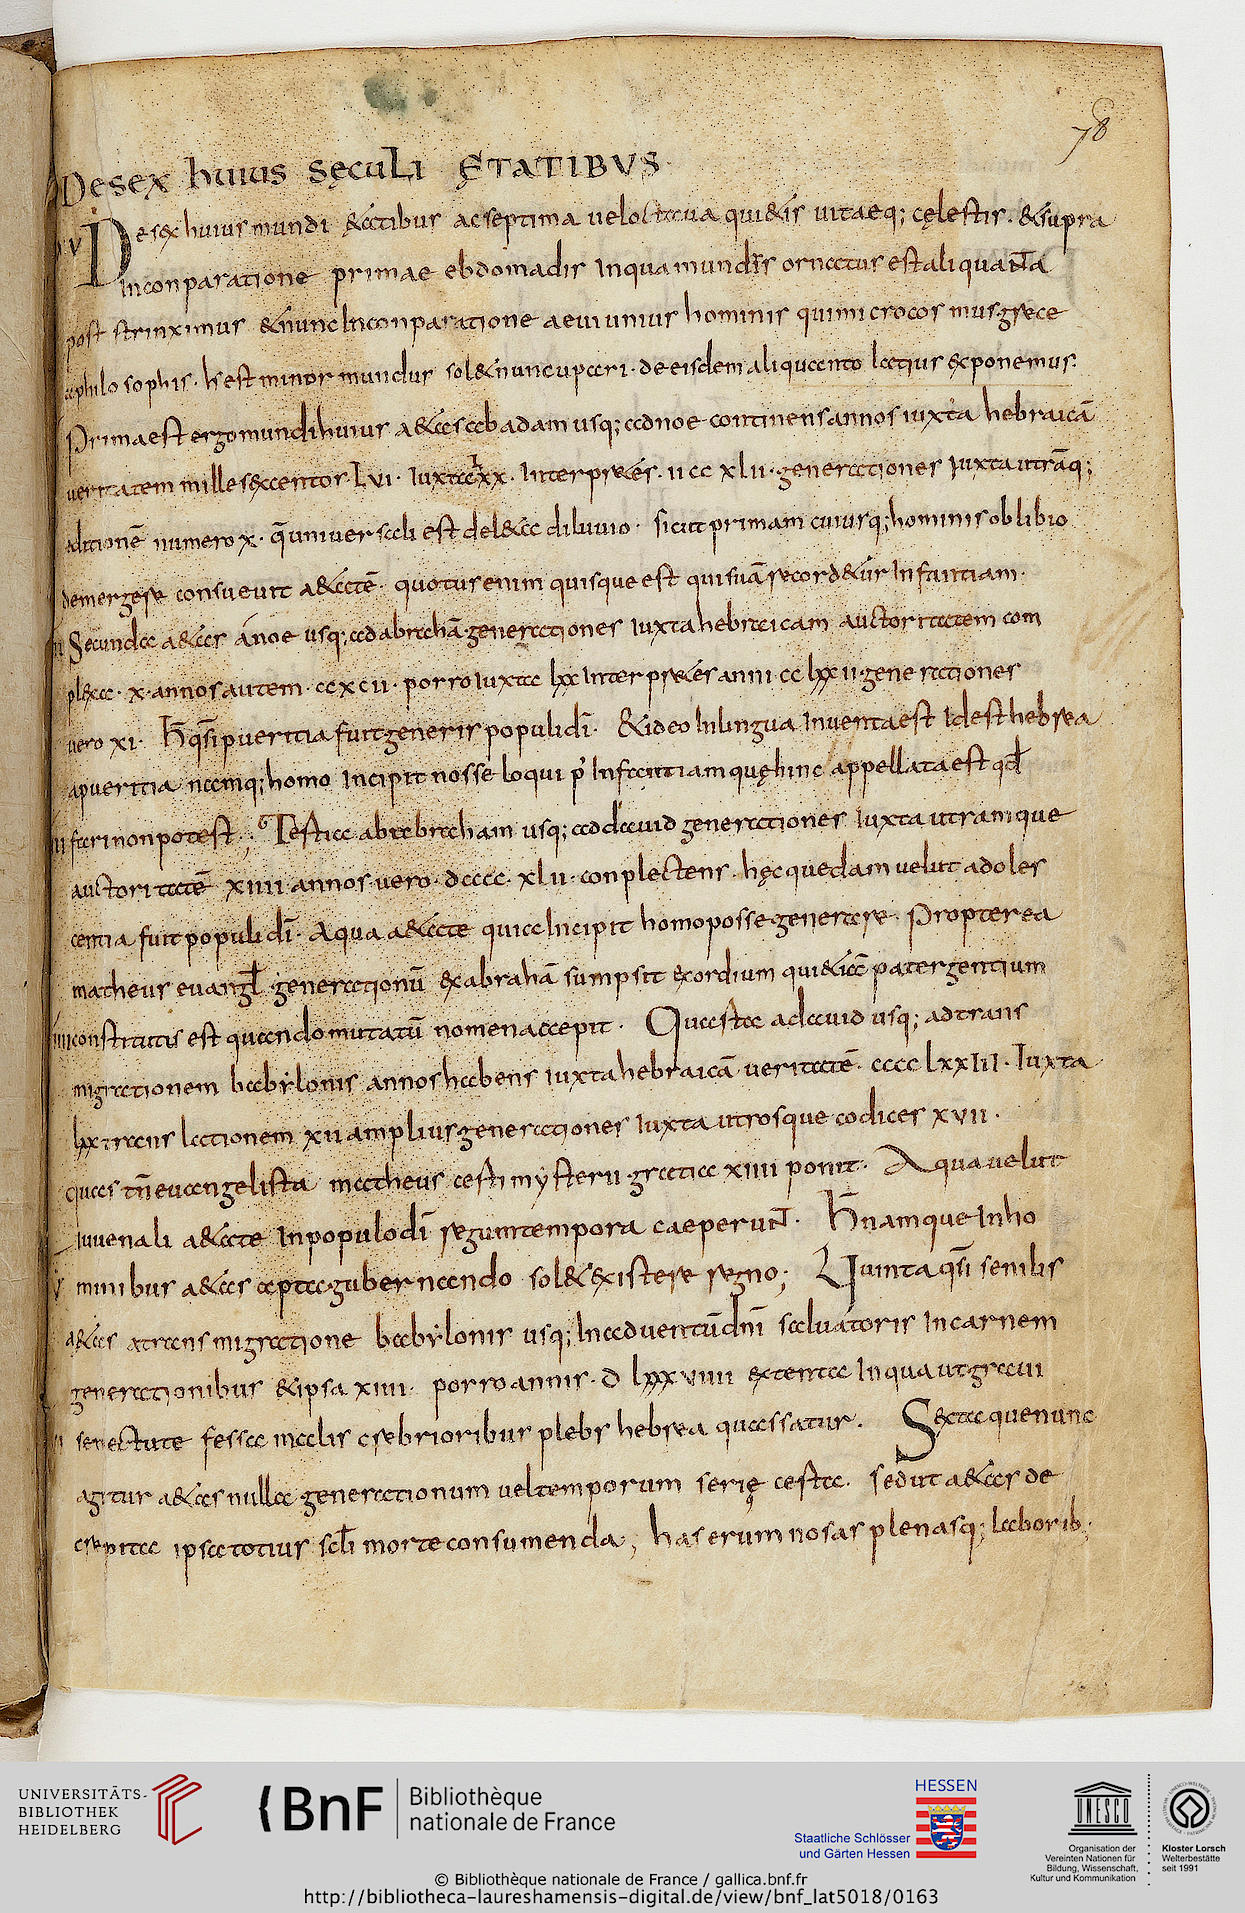 78
De sex huius sęculi ętatibus
De sex huius mundi &atibus ac septima uel octaua qui&is uitaeq; cęlestis. & supra
in conparatione primae ebdomadis in qua mundus ornatus est aliquanta
post strinximus &nunc in conparatione aeui unius hominis qui microcosmus grece
a philosophis. h est minor mundus sol& nuncupari. de eisdem aliquanto latius exponemus.
Prima est ergo mundi huius a&as ab adam usq; ad noe continens annos iuxta hebraicā
ueritatem mille sexcentos LVI. iuxta lxx. interpr&es. II CC XLII. generationes iuxta utrāq;
editionē numero x. q̄ uniuersali est del&a diluuio. sicut primam cuiusq; hominis obliuio
demergere consueuit a&atē. quotus enim quisque est qui suā record&ur infantiam.
II Secunda a&as a noe usq; ad abrahā generationes iuxta hebraicam auctoritatem com
pl&a. x. annos autem. CCXCII. porro iuxta lxx interpr&es anni CC LXXII generationes
uero XI. H̄ q̄si pueritia fuit generis populi dī. &ideo in lingua inuenta est id est hebrea
a pueritia namq; homo incipit nosse loqui p' infantiam quę hinc appellata est qđ
III fari non potest; Tertia ab abraham usq; ad dauid generationes iuxta utramque
auctoritatē XIIII annos uero. DCCCC. XLII. conplectens. hęc quedam uelut adoles
centia fuit populi dī. A qua a&ate quia incipit homo posse generare. Propterea
matheus euangł generationū ex abrahā sumpsit exordium qui &iā pater gentium
IIII constitutus est quando mutatū nomen accepit. Quarta a dauid usq; ad trans
migrationem babylonis annos habens iuxta hebraicā ueritatē. CCCC LXXIII. Iuxta
lxx trans lationem XII amplius generationes iuxta utrosque codices XVII.
quas tn̄ euangelista matheus certi mysterii gratia XIIII ponit. A qua uelut
iuuenali a&ate in populo dī regum tempora caeperunt. H̄ namque in ho
V minibus a&as apta gubernando sol& existere regno; Quinta q̄si senilis
a&as a transmigratione babylonis usq; in aduentū dn̄i saluatoris in carnem
generationibus & ipsa XIIII. porro annis. D LXXXVIIII extenta in qua ut graui
VI senectute fessa malis crebrioribus plebs hebrea quassatur. Sexta que nunc
agitur a&as nulla generationum uel temporum serię certa. sed ut a&as de
crepita ipsa totius scłi morte consumenda; has erumnosas plenasq; laborib;
UNIVERSITÄTS-
BIBLIOTHEK
HEIDELBERG
BnF
Bibliothèque
nationale de France
HESSEN
Staatliche Schlösser
und Gärten Hessen
UNESCO
Organisation der
Vereinten Nationen für
Bildung, Wissenschaft,
Kultur und Kommunikation
Kloster Lorsch
Welterbestätte
seit 1991
© Bibliothèque nationale de France / gallica.bnf.fr
http://bibliotheca-laureshamensis-digital.de/view/bnf_lat5018/0163